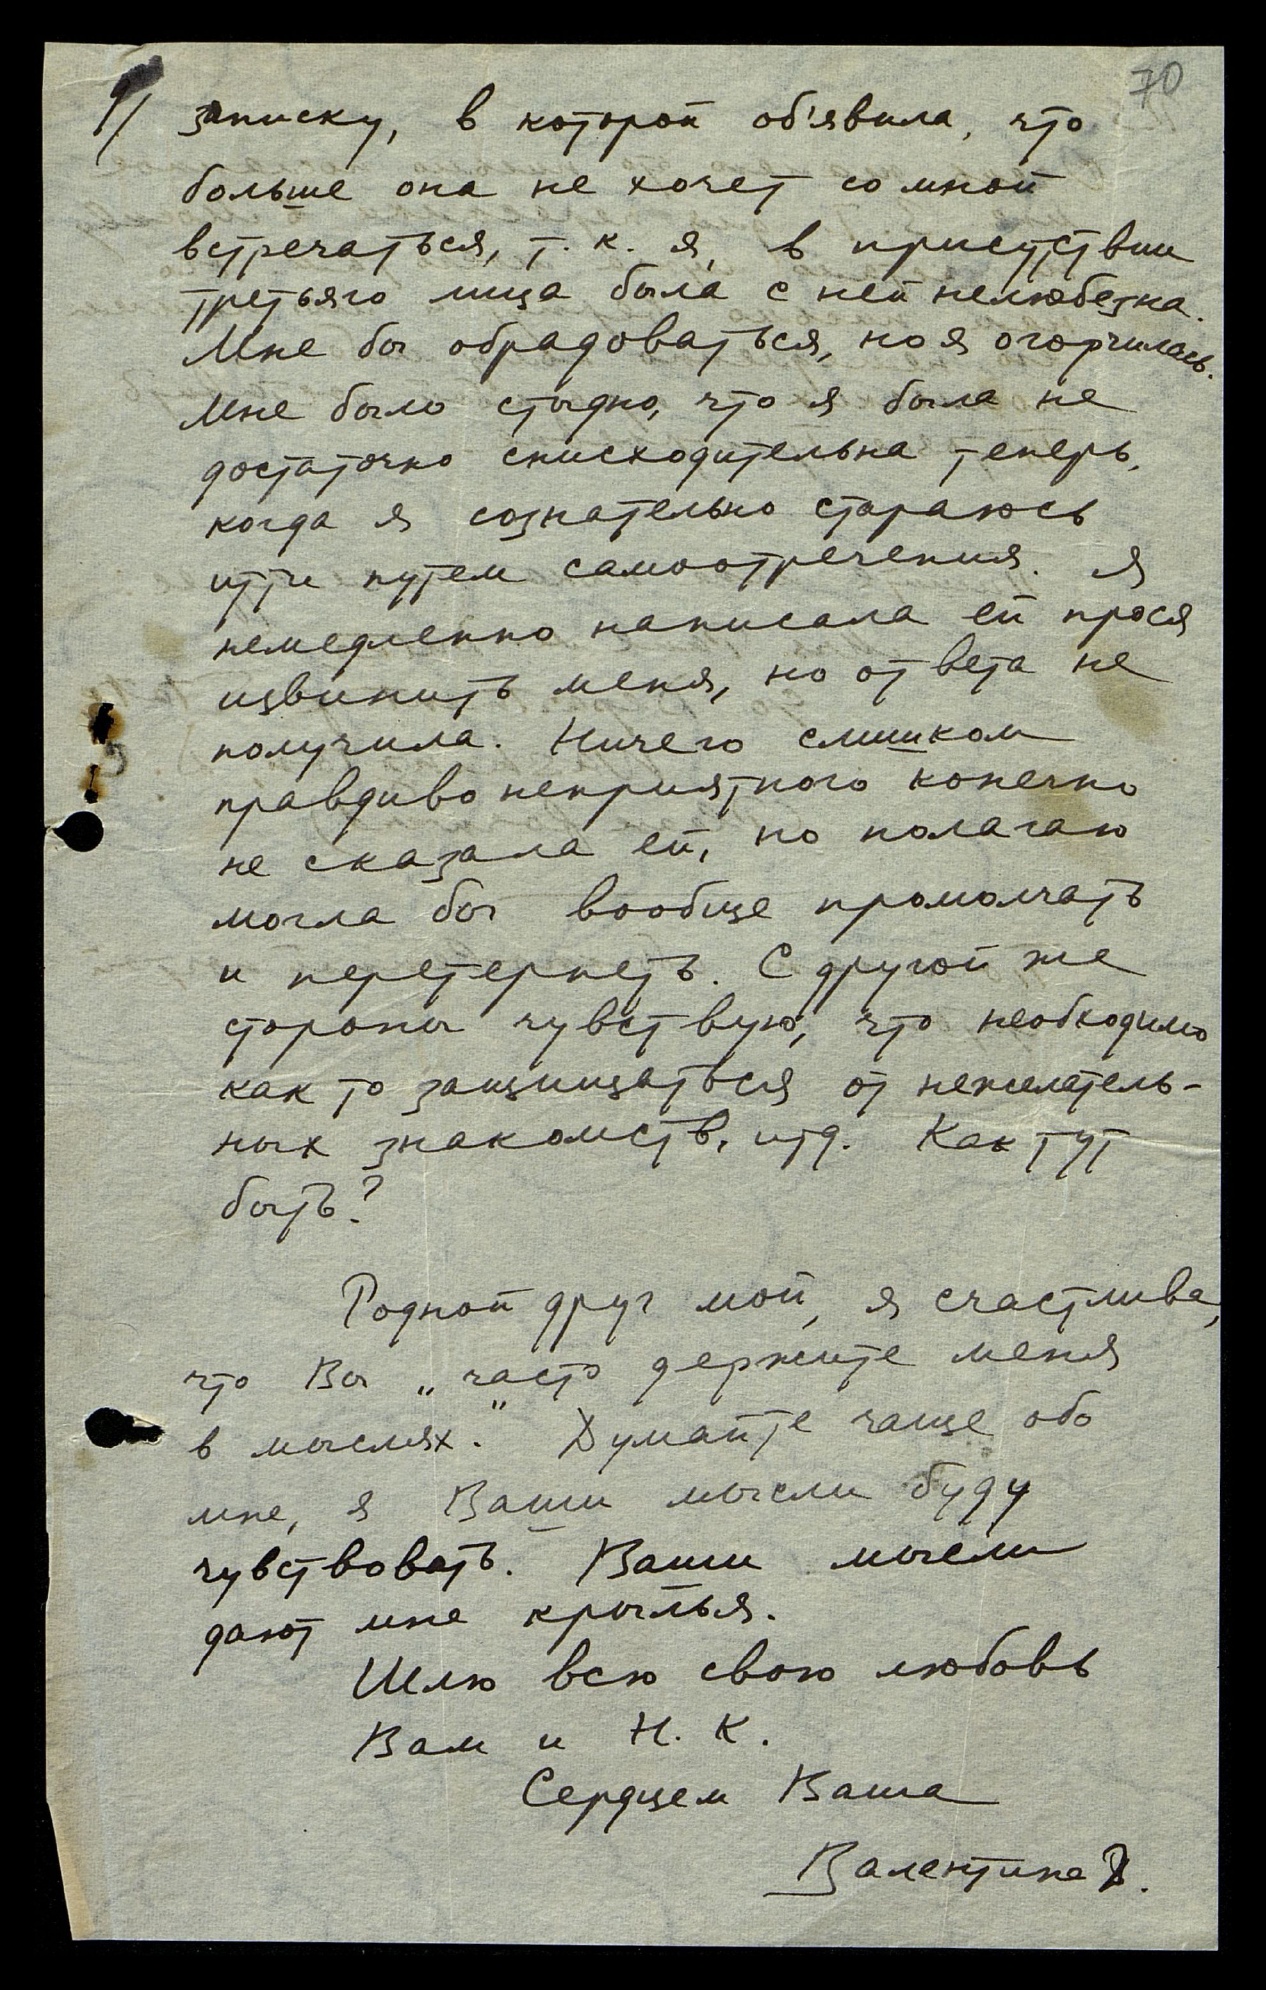 70
9/ записку, в которой об'явила, что
больше она не хочет со мной
встречаться, т. к. я, в присутствии
третьяго лица была с ней нелюбезна.
Мне бы обрадоваться, но я огорчилась.
Мне было стыдно, что я была не
достаточно снисходительна теперь,
когда я сознательно стараюсь
итти путем самоотречения. Я
немедленно написала ей прося
извинить меня, но ответа не
получила. Ничего слишком
правдиво неприятного конечно
не сказала ей, но полагаю
могла бы вообще промолчать
и перетерпеть. С другой же
стороны чувствую, что необходимо
как то защищаться от нежелатель-
ных знакомств, итд. Как тут
быть?
Родной друг мой, я счастлива,
что Вы „часто держите меня
в мыслях". Думайте чаще обо
мне, я Ваши мысли буду
чувствовать. Ваши мысли
дают мне крылья.
Шлю всю свою любовь
Вам и Н. К.
Сердцем Ваша
Валентина Д.